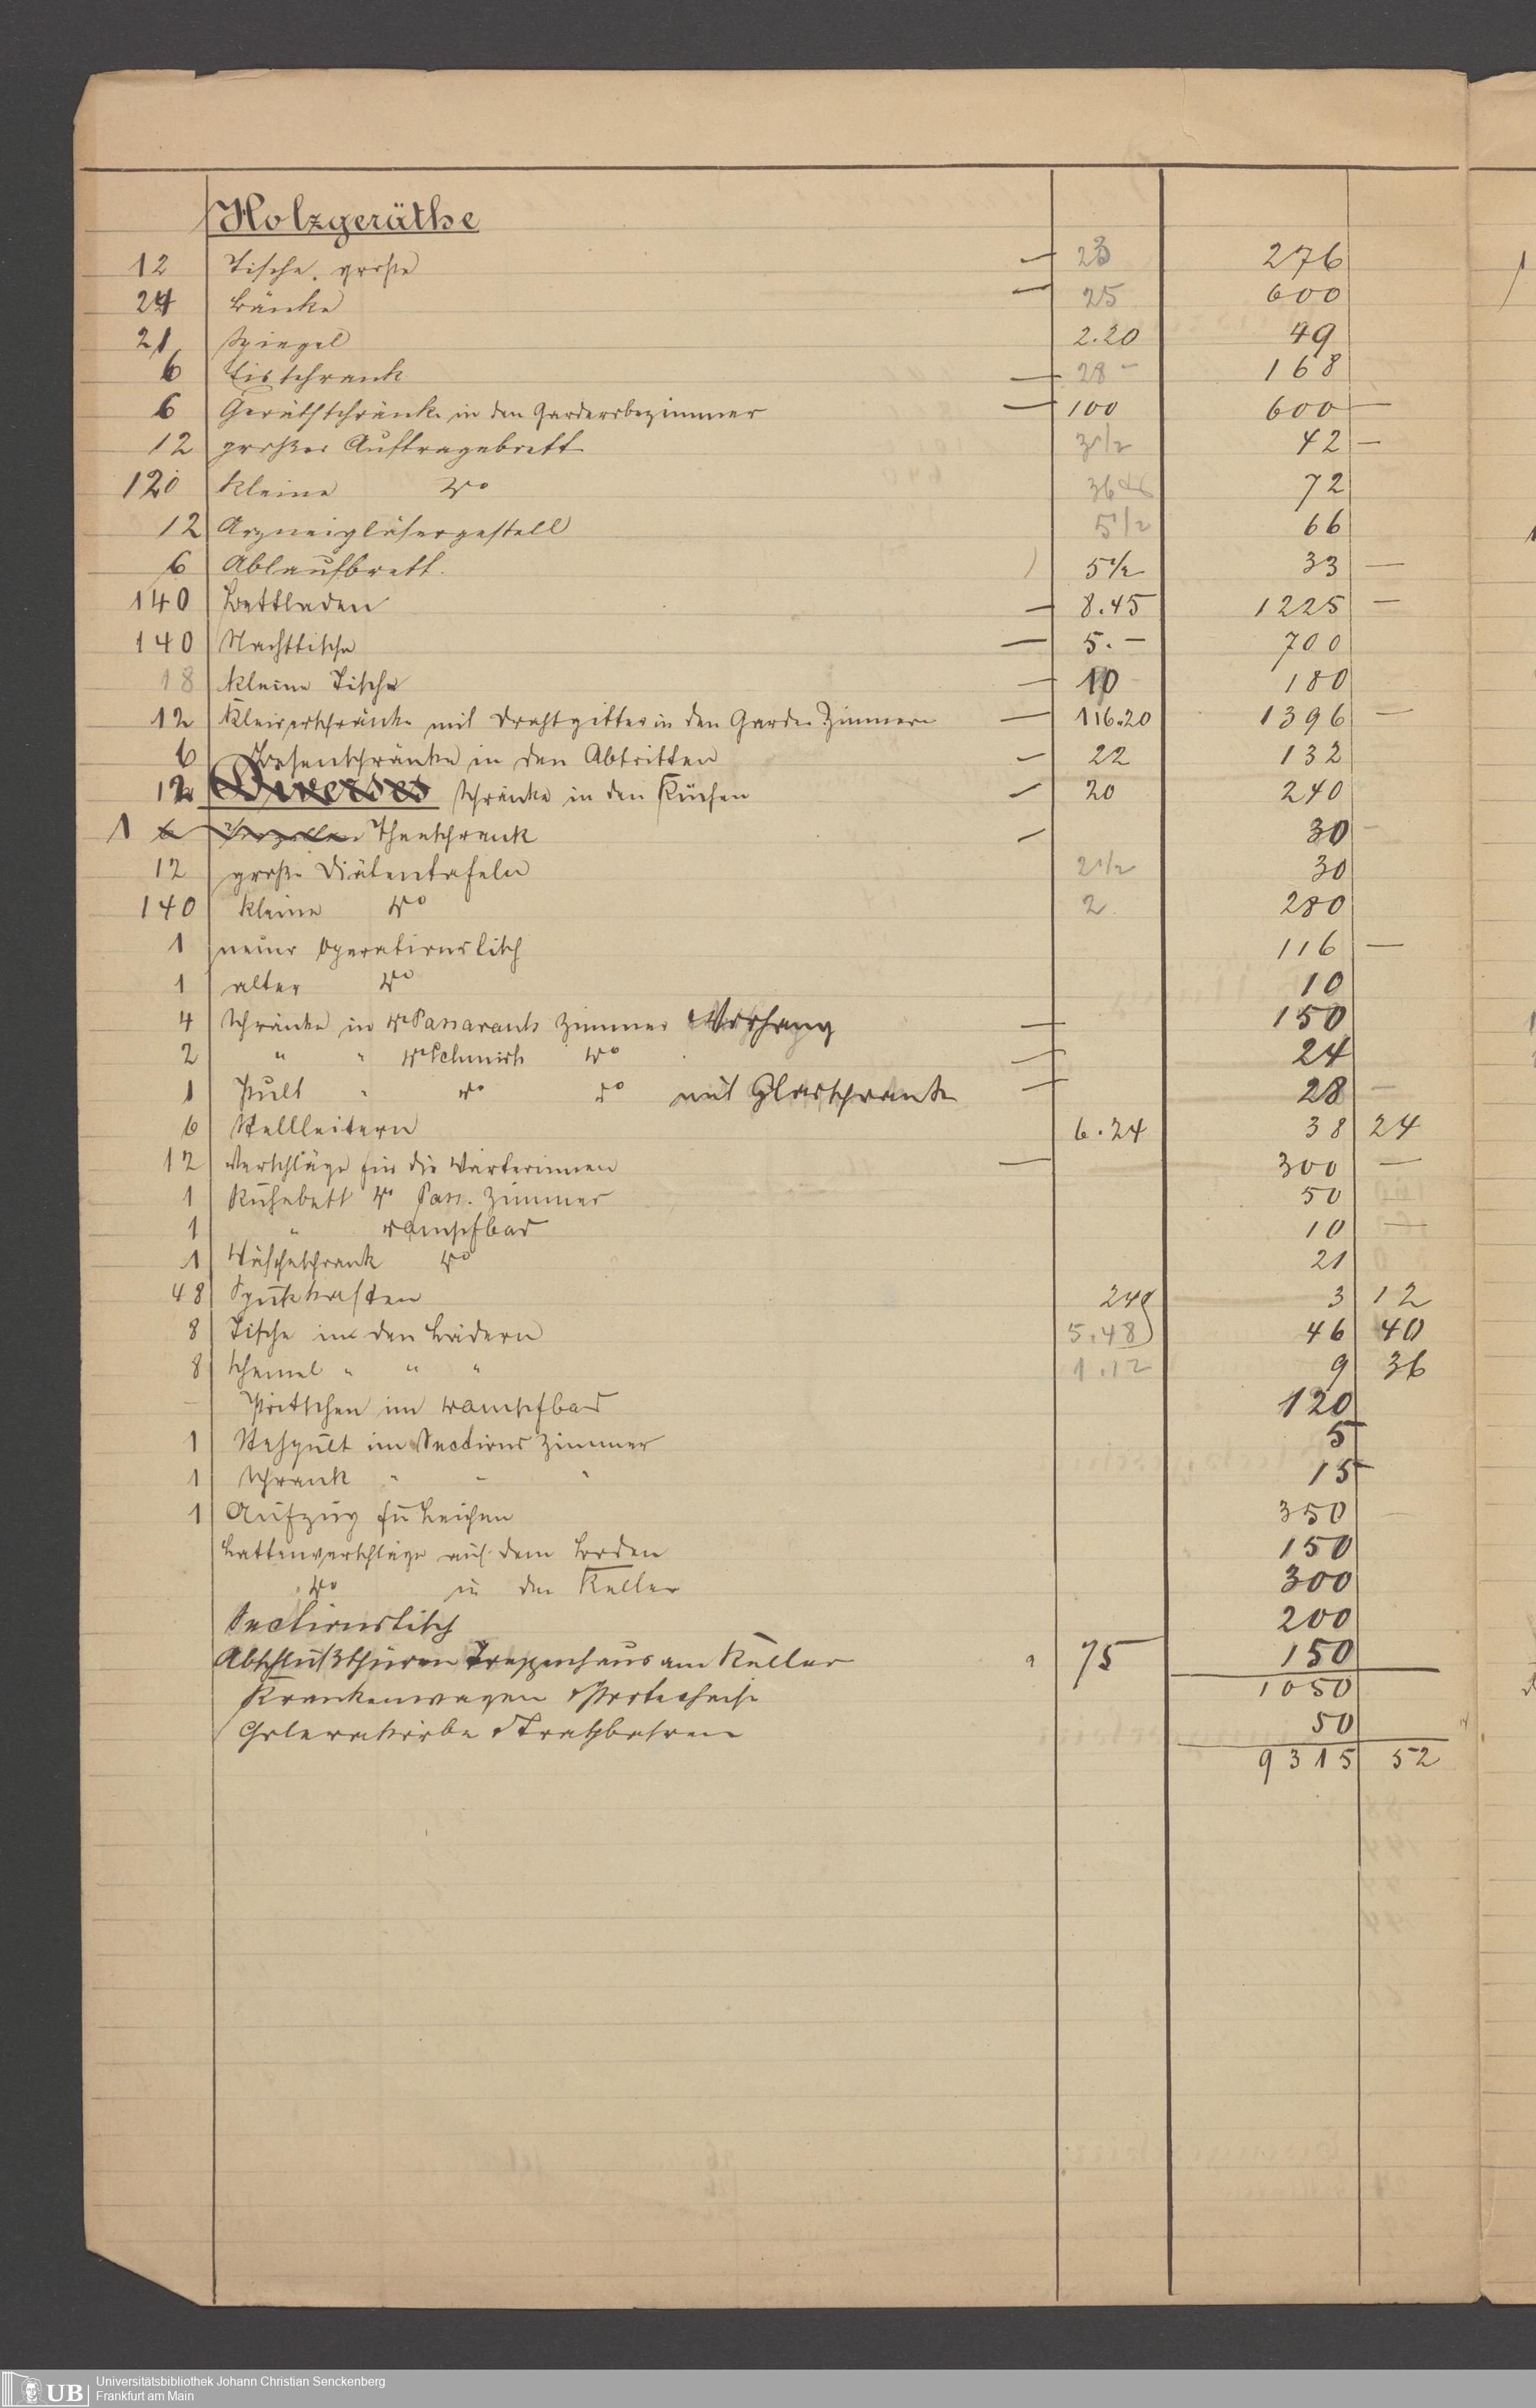 Holzgeräthe
12 Tische, große — 23 276
24 Bänke — 25 600
21 Spiegel 2.20 49
6 Eisschrank — 28 – 168
6 Geräthschränke in den Garderobezimmer — 100 600 —
12 großes Auftragebrett 3½ 42 —
120 kleine do 36 72
12 Arzneigläsergestell 5½ 66
6 Ablaufbrett 5½ 33 —
140 Bettladen — 8.45 1225 —
140 Nachttische — 5. — 700
18 kleine Tische — 10 180
12 Kleiderschränke mit Drahtgitter in den Garde Zimmern — 116.20 1396 —
6 Besenschränke in den Abtritten — 22 132
12 Diverses Schränke in den Küchen — 20 240
1 6 Theeschrank — 30 –
12 große Diätentafeln 2½ 30
140 kleine do 2 280
1 neuer Operationstisch 116 —
1 alter do 10
4 Schränke in Dr Passavants Zimmer Vorhang — 150
2 " " Dr Schmidts do — 24
1 Pult " do do mit Glasschrank — 28 —
6 Stellleitern 6.24 38 24
12 Verschläge für die Wärterinnen — 300 —
1 Ruhebett Dr Pass. Zimmer 50
1 " Dampfbad 10 —
1 Wäscheschrank do 21
48 Spukkasten 24 3 12
8 Tische in den Bädern 5.48 46 40
8 Schemel " " " 1.12 9 36
Pritschen im Dampfbad 120
1 Stehpult im Sections Zimmer 5
1 Schrank " " " 15
1 Aufzug für Leichen 350
Lattenverschläge auf dem Boden 150
do in den Keller 300
Sectionstisch 200
Abschlußthüren Treppenhaus am Keller 75 150
Krankenwagen 1050
Cholerakörbe & Tragbahren 50
9315 52
UB Universitätsbibliothek Johann Christian Senckenberg
Frankfurt am Main